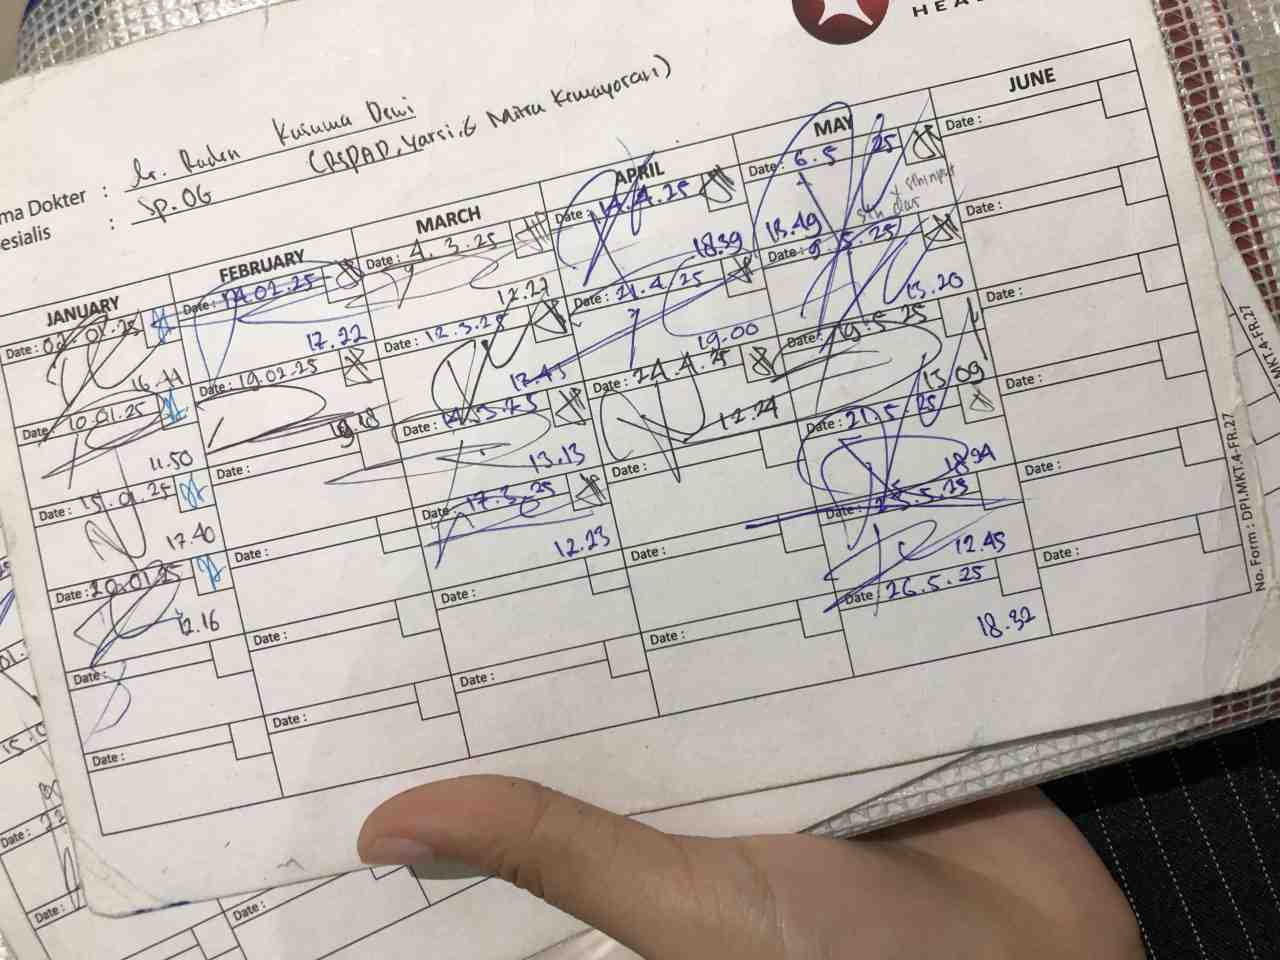 HEA
ma Dokter : dr. Raden Kusuma Dewi
esialis : Sp.OG (RSPAD, Yarsi, & Mitra Kemayoran)
JANUARY
Date : 02.01.25
16.44
Date : 10.01.25
11.50
Date : 15.01.25
17.40
Date : 20.01.25
12.16
Date :
Date :
FEBRUARY
Date : 14.02.25
17.22
Date : 19.02.25
Date :
Date :
Date :
Date :
MARCH
Date : 4.3.25
12.27
Date : 12.3.25
12.43
Date : 14.3.25
13.13
Date : 17.3.25
12.23
Date :
Date :
APRIL
Date : 14.4.25
18.39
Date : 21.4.25
19.00
Date : 24.4.25
12.24
Date :
Date :
Date :
MAY
Date : 6.5.25
18.49
Date : 9.5.25
13.20
Date : 19.5.25
13.09
Date : 21.5.25
18.24
Date :
12.45
Date : 26.5.25
18.32
JUNE
Date :
Date :
Date :
Date :
Date :
Date :
No. Form : DPI.MKT.4-FR.27
MKT.4-FR.27
Date : 22
Date :
Date :